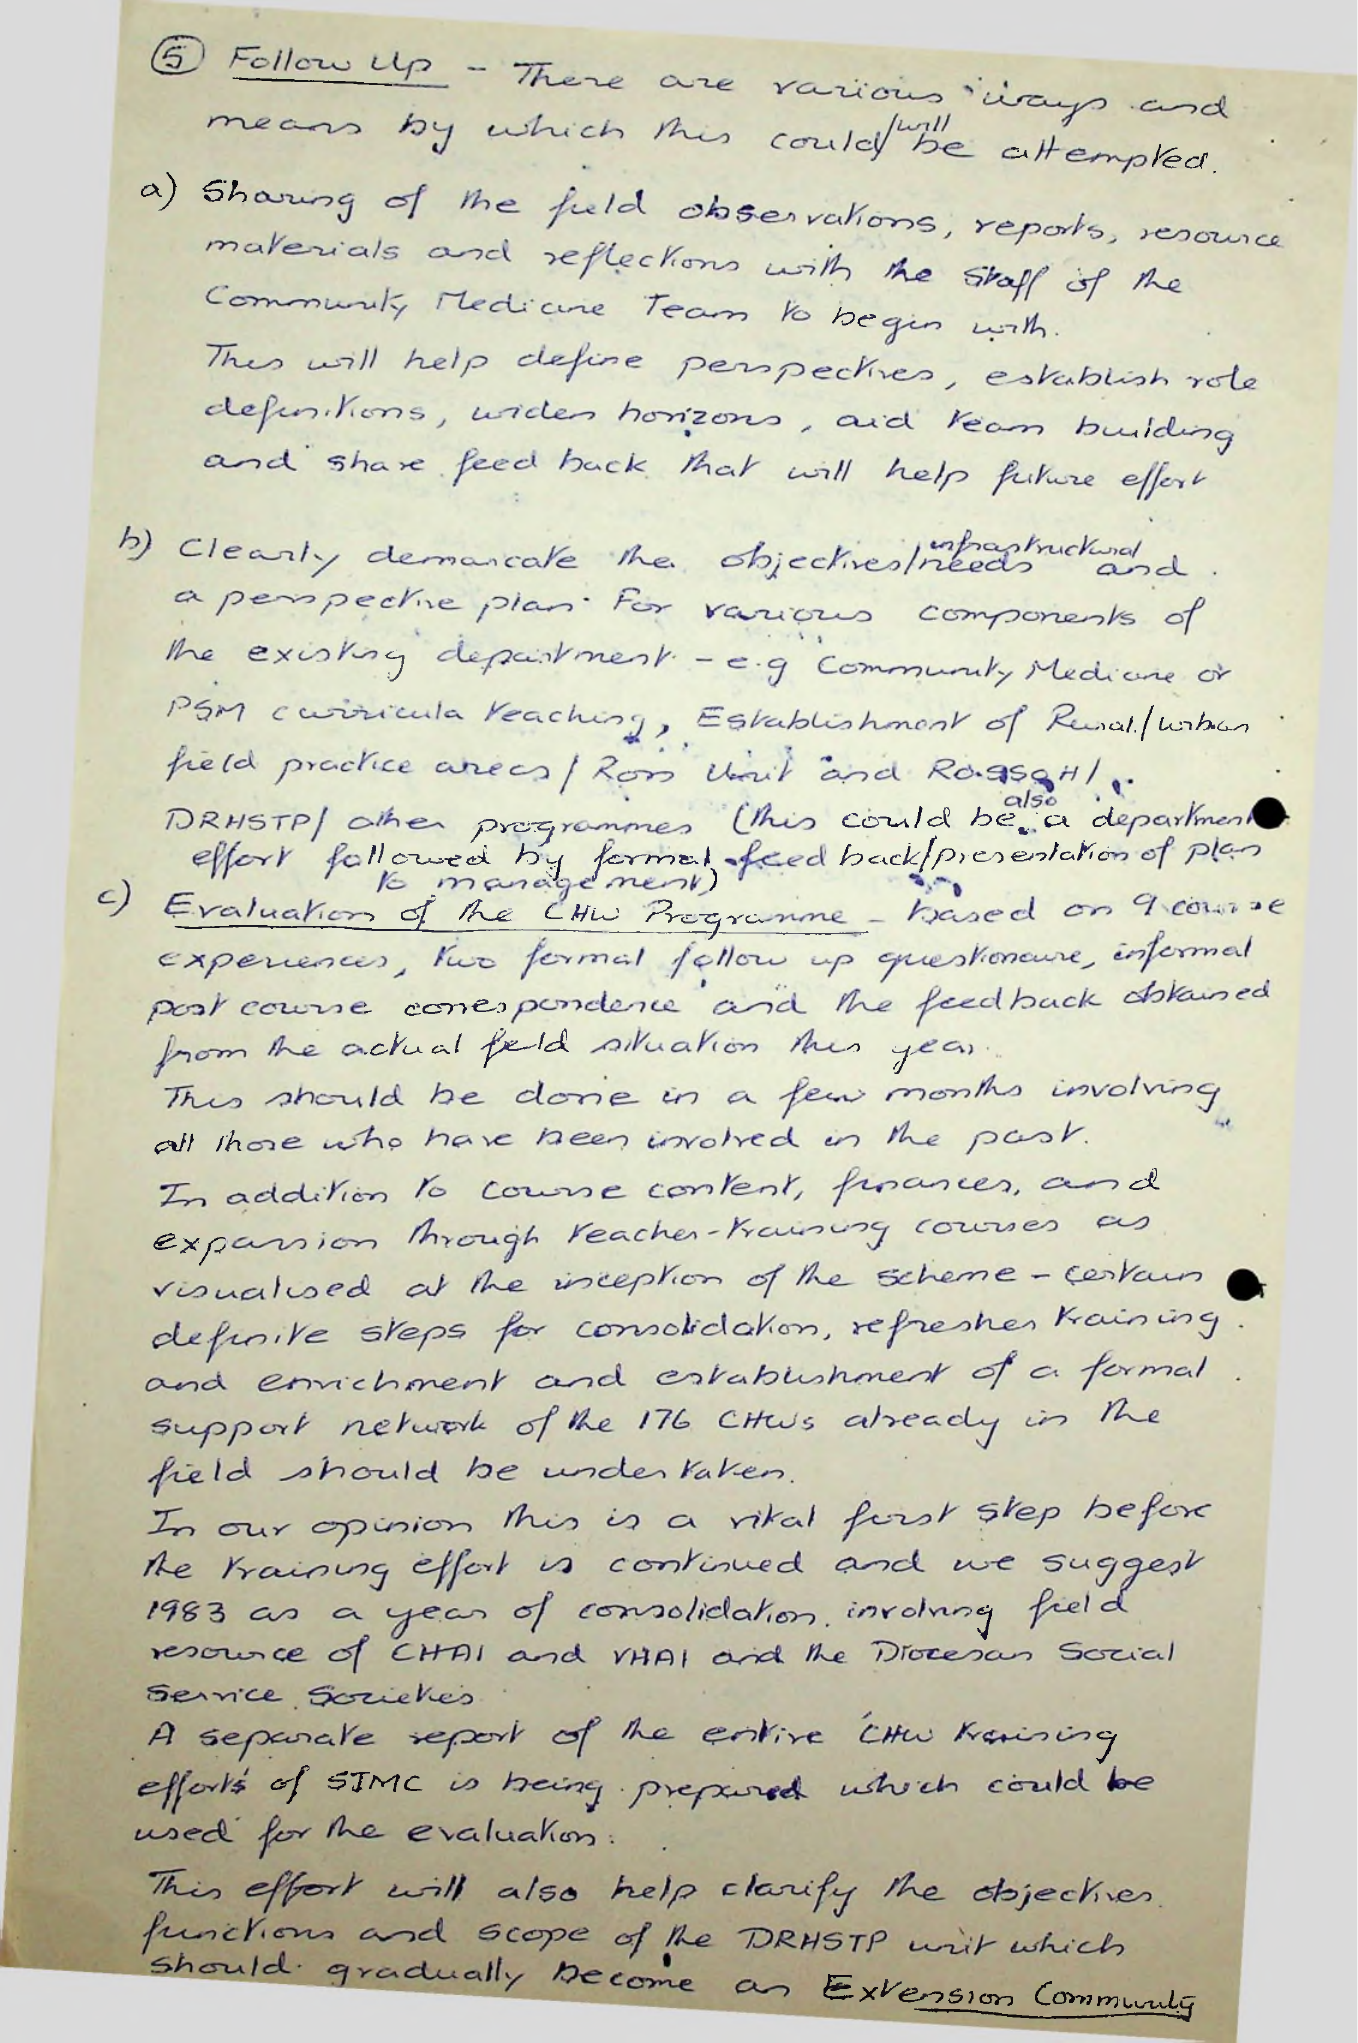 ⑤ Follow Up - There are various ways and
means by which this could/will be attempted.
a) Sharing of the field observations, reports, resource
materials and reflections with the staff of the
Community Medicine Team to begin with.
This will help define perspectives, establish role
definitions, widen horizons, aid team building
and share feed back that will help future effort
b) Clearly demarcate the objectives/infrastructural needs and
a perspective plan for various components of
the existing department - e.g Community Medicine or
PSM curricula teaching, Establishment of Rural/urban
field practice areas / Ross Unit and
DRHSTP/ other programmes (this could be also a department
effort followed by formal feed back/presentation of plan
to management)
c) Evaluation of the CHW Programme - based on 9 course
experiences, two formal follow up questionaire, informal
post course correspondence and the feedback obtained
from the actual field situation this year.
This should be done in a few months involving
all those who have been involved in the past.
In addition to course content, finances, and
expansion through teacher-training courses as
visualised at the inception of the scheme - certain
definite steps for consolidation, refresher training
and enrichment and establishment of a formal
support network of the 176 CHWs already in the
field should be undertaken.
In our opinion this is a vital first step before
the training effort is continued and we suggest
1983 as a year of consolidation involving field
resource of CHAI and VHAI and the Diocesan Social
Service Societies
A separate report of the entire CHW training
efforts of SJMC is being prepared which could be
used for the evaluation.
This effort will also help clarify the objectives
functions and scope of the DRHSTP unit which
should gradually become an Extension Community